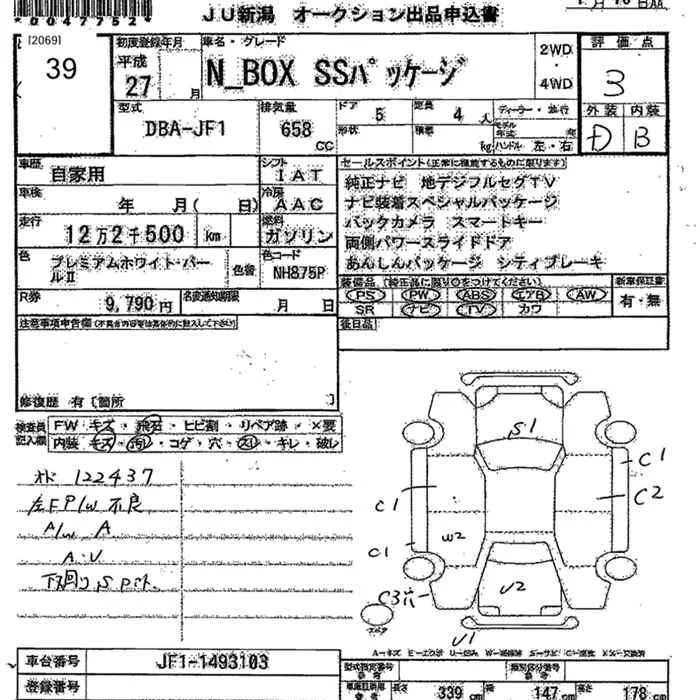 *0047752*
JU新潟 オークション出品申込書
[2069]
39
初度登録年月
平成
27
月
車名・グレード
N_BOX SSパッケージ
2WD
・
4WD
評価点
3
外装 内装
D B
型式
DBA-JF1
排気量
658
CC
ドア 5
定員 4 人
形状
積載
kg
ディーラー・並行
モデル年式 年
ハンドル 左・右
車歴
自家用
シフト
IAT
車検
年 月( 日)
冷房
AAC
走行
12万2千500 km
燃料
ガソリン
色
プレミアムホワイト・パールII
色替
色コード
NH875P
R券
9,790円
名変通知期限
月 日
セールスポイント(正常に機能するものに限ります)
純正ナビ 地デジフルセグTV
ナビ装着スペシャルパッケージ
バックカメラ スマートキー
両側パワースライドドア
あんしんパッケージ シティブレーキ
装備品(純正品に限り○をつけてください)
PS PW ABS エアB AW
SR ナビ TV カワ
新車保証書
有・無
後日品
注意事項申告欄(不具合内容等は具体的に記入して下さい)
修復歴 有〔箇所 〕
検査員記入欄
FW キズ・飛石・ヒビ割・リペア跡・×要
内装 キズ・汚・コゲ・穴・スレ・キレ・破レ
オド 122437
左F P/W 不良
A/W A
A・U
下回り S Pit.
S1
C1
C2
C1
C1
W2
C3穴
U2
U1
スペア
A-キズ E-エクボ U-凹み W-補修跡 S-サビ C-腐食 X-交換済
車台番号
JF1-1493103
登録番号
型式指定番号
類別区分番号
長さ 339 cm
幅 147 cm
高さ 178 cm